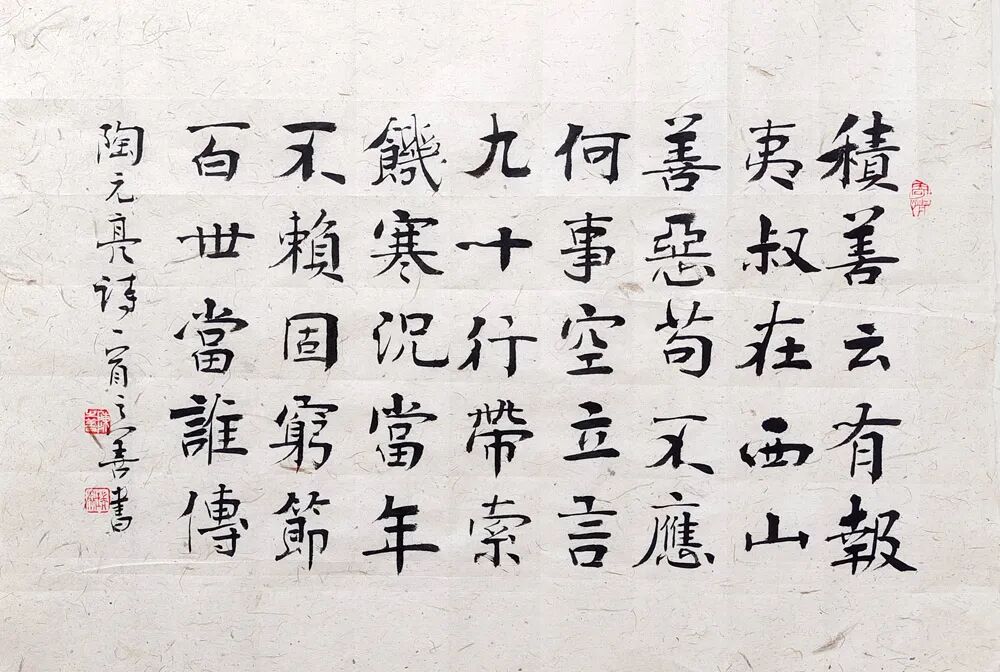 積善云有報
夷叔在西山
善惡苟不應
何事空立言
九十行帶索
饑寒況當年
不賴固窮節
百世當誰傳
陶元亮詩一首 喜書